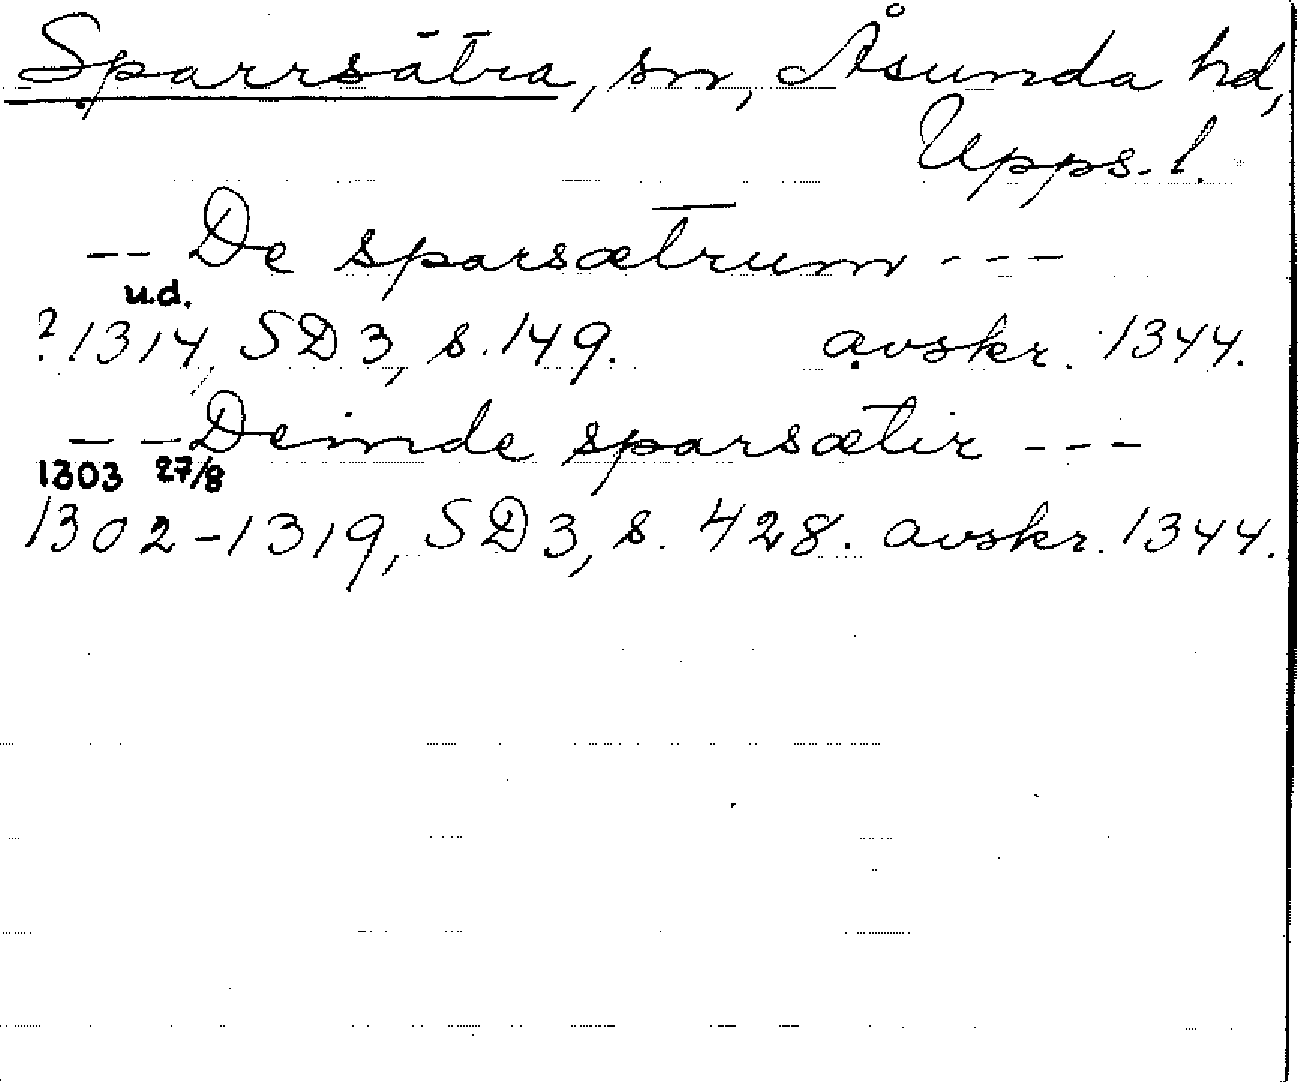 Sparrsätra, sn, Åsunda hd,
Upps. l.
-- De sparsætrum ---
u.d.
? 1314, SD 3, s. 149. avskr. 1344.
-- Deinde sparsætir ---
1303 27/8
1302-1319, SD 3, s. 428. avskr. 1344.